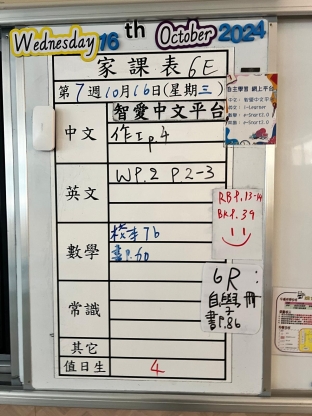 Wednesday 16 th October 2024
家課表 6E
第7週10月16日(星期三)
智愛中文平台
中文
作工p.4
英文
WP.2 P.2-3
RB P.13-14
BK P.39
數學
校本7b
書P.60
6R:
自學冊
書P.86
常識
其它
值日生
4
自主學習 網上平台